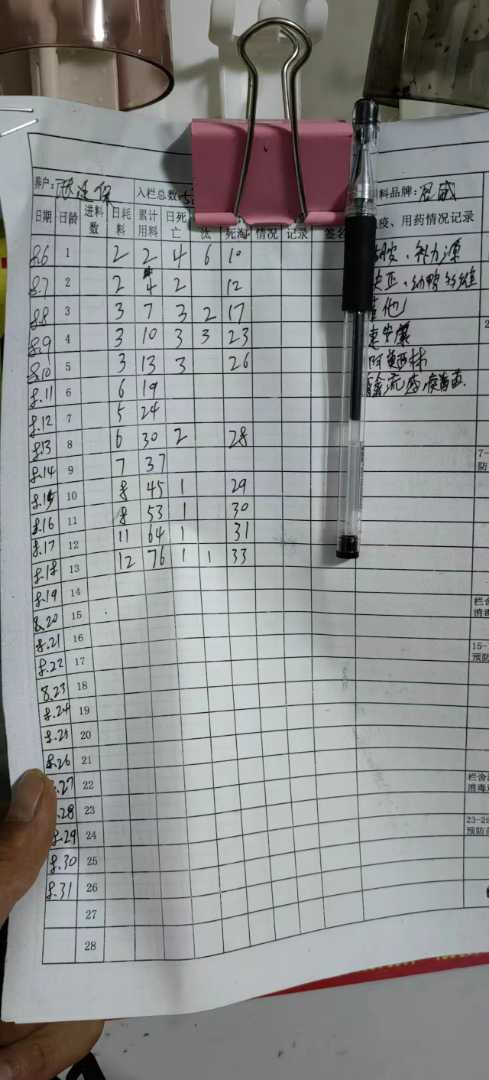 养户： 入栏总数 料品牌：
日期 日龄 进料数 日耗料 累计用料 日死亡 汰 死淘 情况 记录 签名 疫、用药情况记录
8.6 1 2 2 4 6 10
8.7 2 2 4 2 12
8.8 3 3 7 3 2 17
8.9 4 3 10 3 3 23
8.10 5 3 13 3 26
8.11 6 6 19
8.12 7 5 24
8.13 8 6 30 2 28
8.14 9 7 37
8.15 10 8 45 1 29
8.16 11 8 53 1 30
8.17 12 11 64 1 31
8.18 13 12 76 1 1 33
8.19 14
8.20 15
8.21 16
8.22 17
8.23 18
8.24 19
8.25 20
8.26 21
8.27 22
.28 23
8.29 24
8.30 25
8.31 26
27
28
阿莫西林
7-
防
栏舍
消毒
15-
预防
栏舍
消毒
23-28
预防